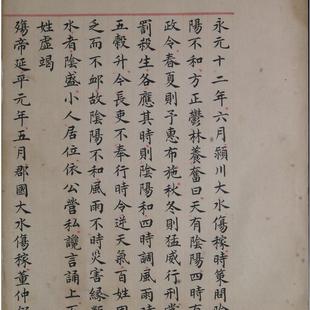 永元十二年六月潁川大水傷稼時策問陰
陽不和方正鬱林養奮曰天有陰陽四時有
政令春夏則予惠布施秋冬則猛威行刑賞
罰殺生各應其時則陰陽和四時調風雨時
五穀升今長吏不奉行時令逆天氣百姓困
乏而不卹故陰陽不和風雨不時災害緣類
水者陰盛小人居位依公營私讒言誦上
姓虛竭
殤帝延平元年五月郡國大水傷稼董仲舒